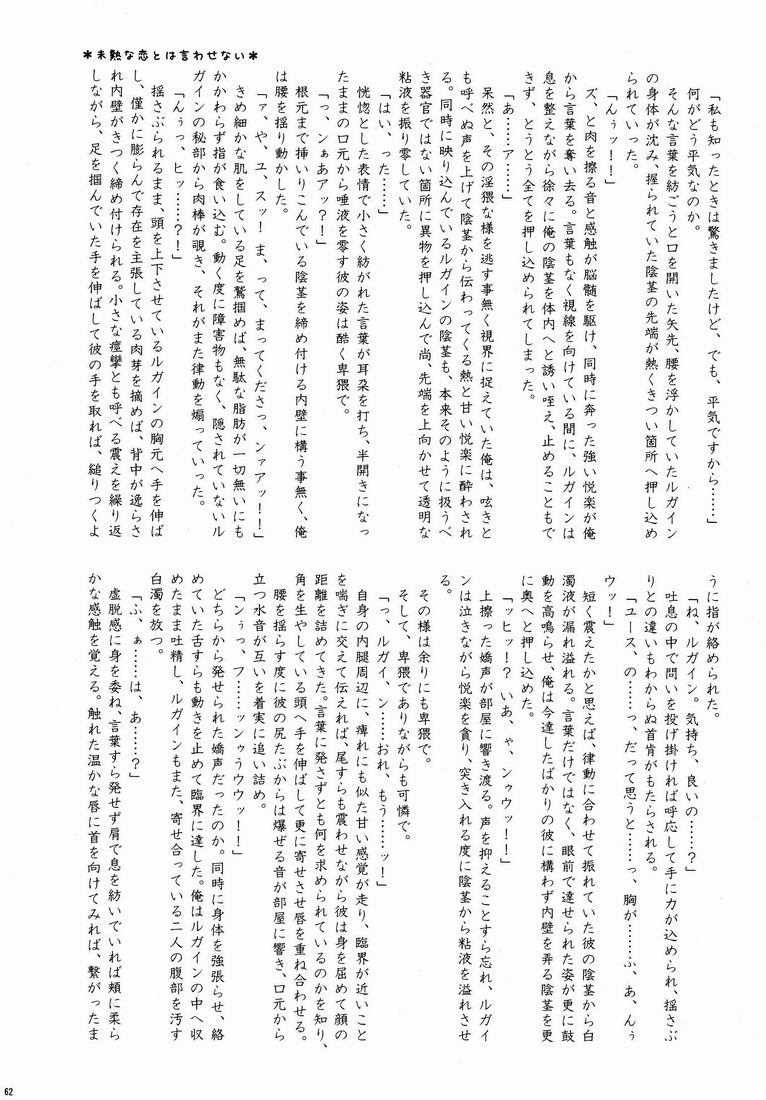 ＊未熟な恋とは言わせない＊
「私も知ったときは驚きましたけど、でも、平気ですから……」
何がどう平気なのか。
そんな言葉を紡ごうと口を開いた矢先、腰を浮かしていたルガイン
の身体が沈み、握られていた陰茎の先端が熱くきつい箇所へ押し込め
られていった。
「んぅッ！！」
ズ、と肉を擦る音と感触が脳髄を駆け、同時に奔った強い悦楽が俺
から言葉を奪い去る。言葉もなく視線を向けている間に、ルガインは
息を整えながら徐々に俺の陰茎を体内へと誘い咥え、止めることもで
きず、とうとう全てを押し込められてしまった。
「あ……ア……」
呆然と、その淫猥な様を逃す事無く視界に捉えていた俺は、呟きと
も呼べぬ声を上げて陰茎から伝わってくる熱と甘い悦楽に酔わされ
る。同時に映り込んでいるルガインの陰茎も、本来そのように扱うべ
き器官ではない箇所に異物を押し込んで尚、先端を上向かせて透明な
粘液を振り零していた。
「はい、った……」
恍惚とした表情で小さく紡がれた言葉が耳朶を打ち、半開きになっ
たままの口元から唾液を零す彼の姿は酷く卑猥で。
「っ、ンぁあアッ？！」
根元まで挿いりこんでいる陰茎を締め付ける内壁に構う事無く、俺
は腰を揺り動かした。
「ァ、や、ユ、スッ！ま、って、まってくださっ、ンァアッ！！」
きめ細かな肌をしている足を鷲掴めば、無駄な脂肪が一切無いにも
かかわらず指が食い込む。動く度に障害物もなく、隠されていないル
ガインの秘部から肉棒が覗き、それがまた律動を煽っていった。
「んぅっ、ヒッ……？！」
揺さぶられるまま、頭を上下させているルガインの胸元へ手を伸ば
し、僅かに膨らんで存在を主張している肉芽を摘めば、背中が逸らさ
れ内壁がきつく締め付けられる。小さな痙攣とも呼べる震えを繰り返
しながら、足を掴んでいた手を伸ばして彼の手を取れば、縋りつくよ
うに指が絡められた。
「ね、ルガイン。気持ち、良いの……？」
吐息の中で問いを投げ掛ければ呼応して手に力が込められ、揺さぶ
りとの違いもわからぬ首肯がもたらされる。
「ユース、の……っ、だって思うと……っ、胸が……ふ、あ、んぅ
ウッ！」
短く震えたかと思えば、律動に合わせて振れていた彼の陰茎から白
濁液が漏れ溢れる。言葉だけではなく、眼前で達せられた姿が更に鼓
動を高鳴らせ、俺は今達したばかりの彼に構わず内壁を弄る陰茎を更
に奥へと押し込めた。
「ッヒッ！？いあ、ゃ、ンゥウッ！！」
上擦った嬌声が部屋に響き渡る。声を抑えることすら忘れ、ルガイ
ンは泣きながら悦楽を貪り、突き入れる度に陰茎から粘液を溢れさせ
る。
その様は余りにも卑猥で。
そして、卑猥でありながらも可憐で。
「っ、ルガイ、ン……おれ、もう……ッ！」
自身の内腿周辺に、痺れにも似た甘い感覚が走り、臨界が近いこと
を喘ぎに交えて伝えれば、尾すらも震わせながら彼は身を屈めて顔の
距離を詰めてきた。言葉に発さずとも何を求められているのかを知り、
角を生やしている頭へ手を伸ばして更に寄せさせ唇を重ね合わせる。
腰を揺らす度に彼の尻たぶからは爆ぜる音が部屋に響き、口元から
立つ水音が互いを着実に追い詰め。
「ンぅっ、フ……ッンゥうウウッ！！」
どちらから発せられた嬌声だったのか。同時に身体を強張らせ、絡
めていた舌すらも動きを止めて臨界に達した。俺はルガインの中へ収
めたまま吐精し、ルガインもまた、寄せ合っている二人の腹部を汚す
白濁を放つ。
「ふ、ぁ……は、あ……？」
虚脱感に身を委ね、言葉すら発せず肩で息を紡いでいれば頬に柔ら
かな感触を覚える。触れた温かな唇に首を向けてみれば、繋がったま
62